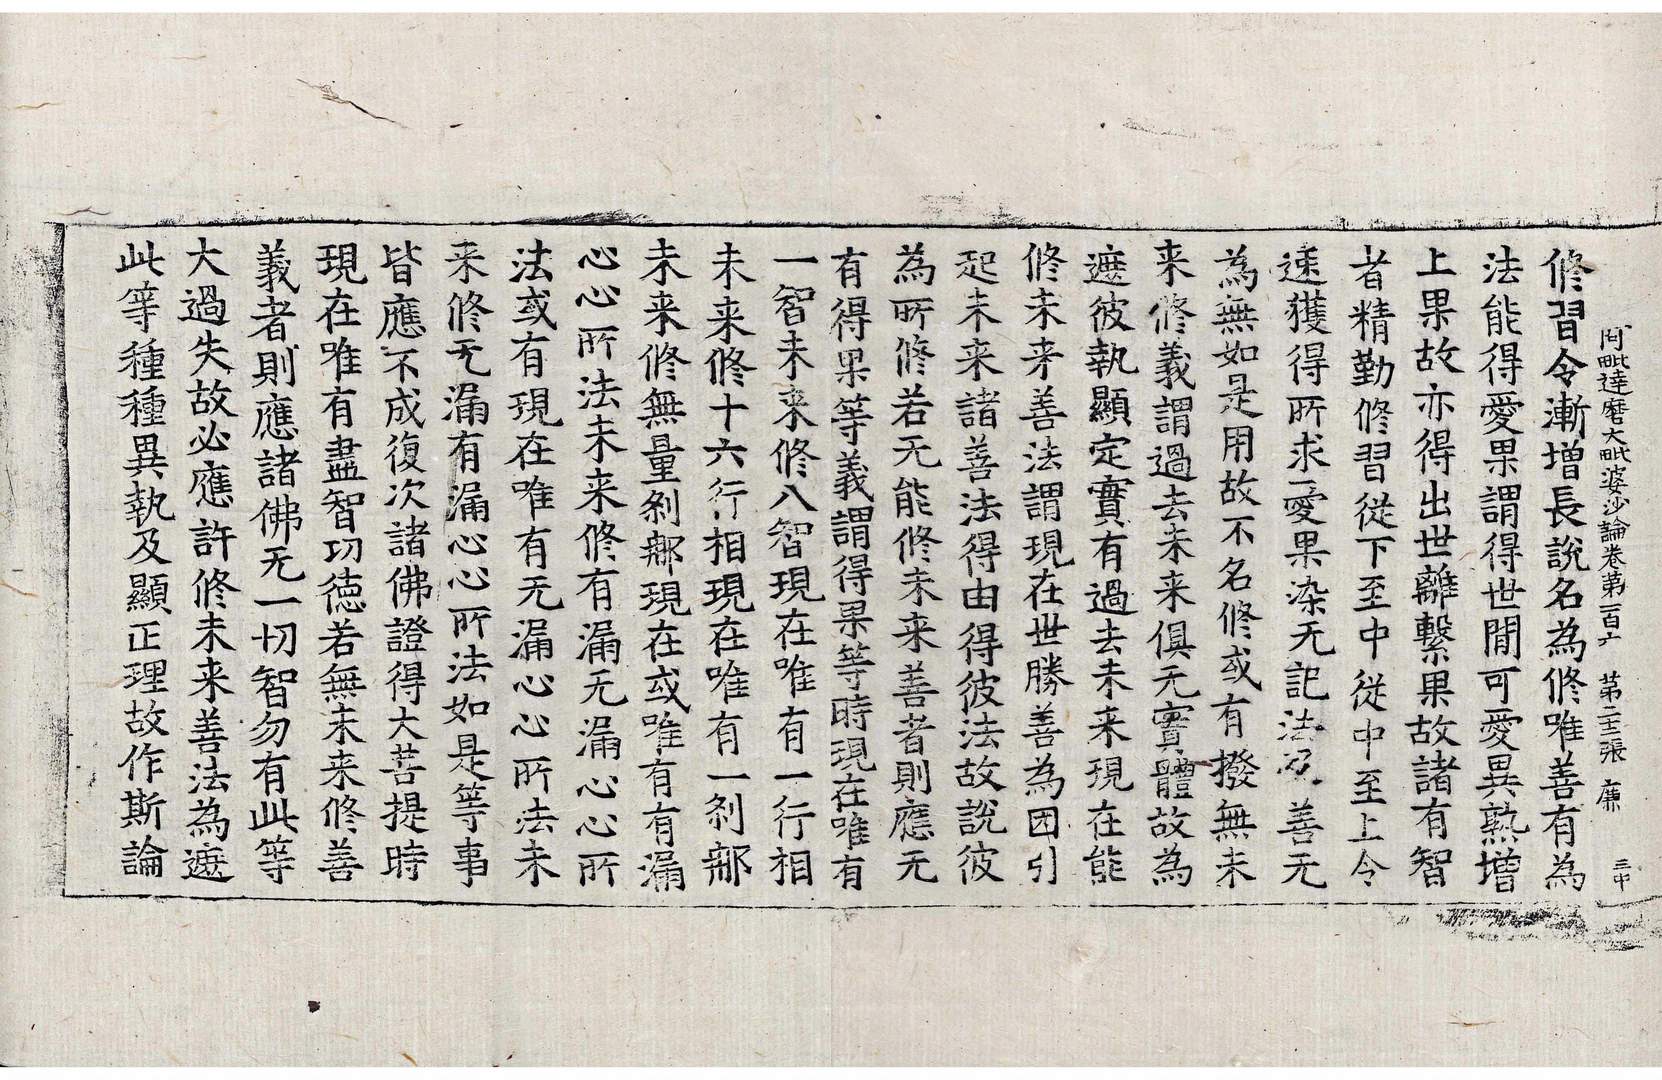 阿毗達磨大毗婆沙論卷第一百六 第二十三張 廉 三中
修習令漸增長說名為修唯善有為
法能得愛果謂得世間可愛異熟增
上果故亦得出世離繫果故諸有智
者精勤修習從下至中從中至上令
速獲得所求愛果染无記法 善无
為無如是用故不名修或有撥無未
来修義謂過去未来俱无實體故為
遮彼執顯定實有過去未来現在能
修未来善法謂現在世勝善為因引
起未来諸善法得由得彼法故說彼
為所修若无能修未来善者則應无
有得果等義謂得果等時現在唯有
一智未来修八智現在唯有一行相
未来修十六行相現在唯有一刹那
未来修無量刹那現在或唯有有漏
心心所法未来修有漏无漏心心所
法或有現在唯有无漏心心所法未
来修无漏有漏心心所法如是等事
皆應不成復次諸佛證得大菩提時
現在唯有盡智功德若無未来修善
義者則應諸佛无一切智勿有此等
大過失故必應許修未来善法為遮
此等種種異執及顯正理故作斯論